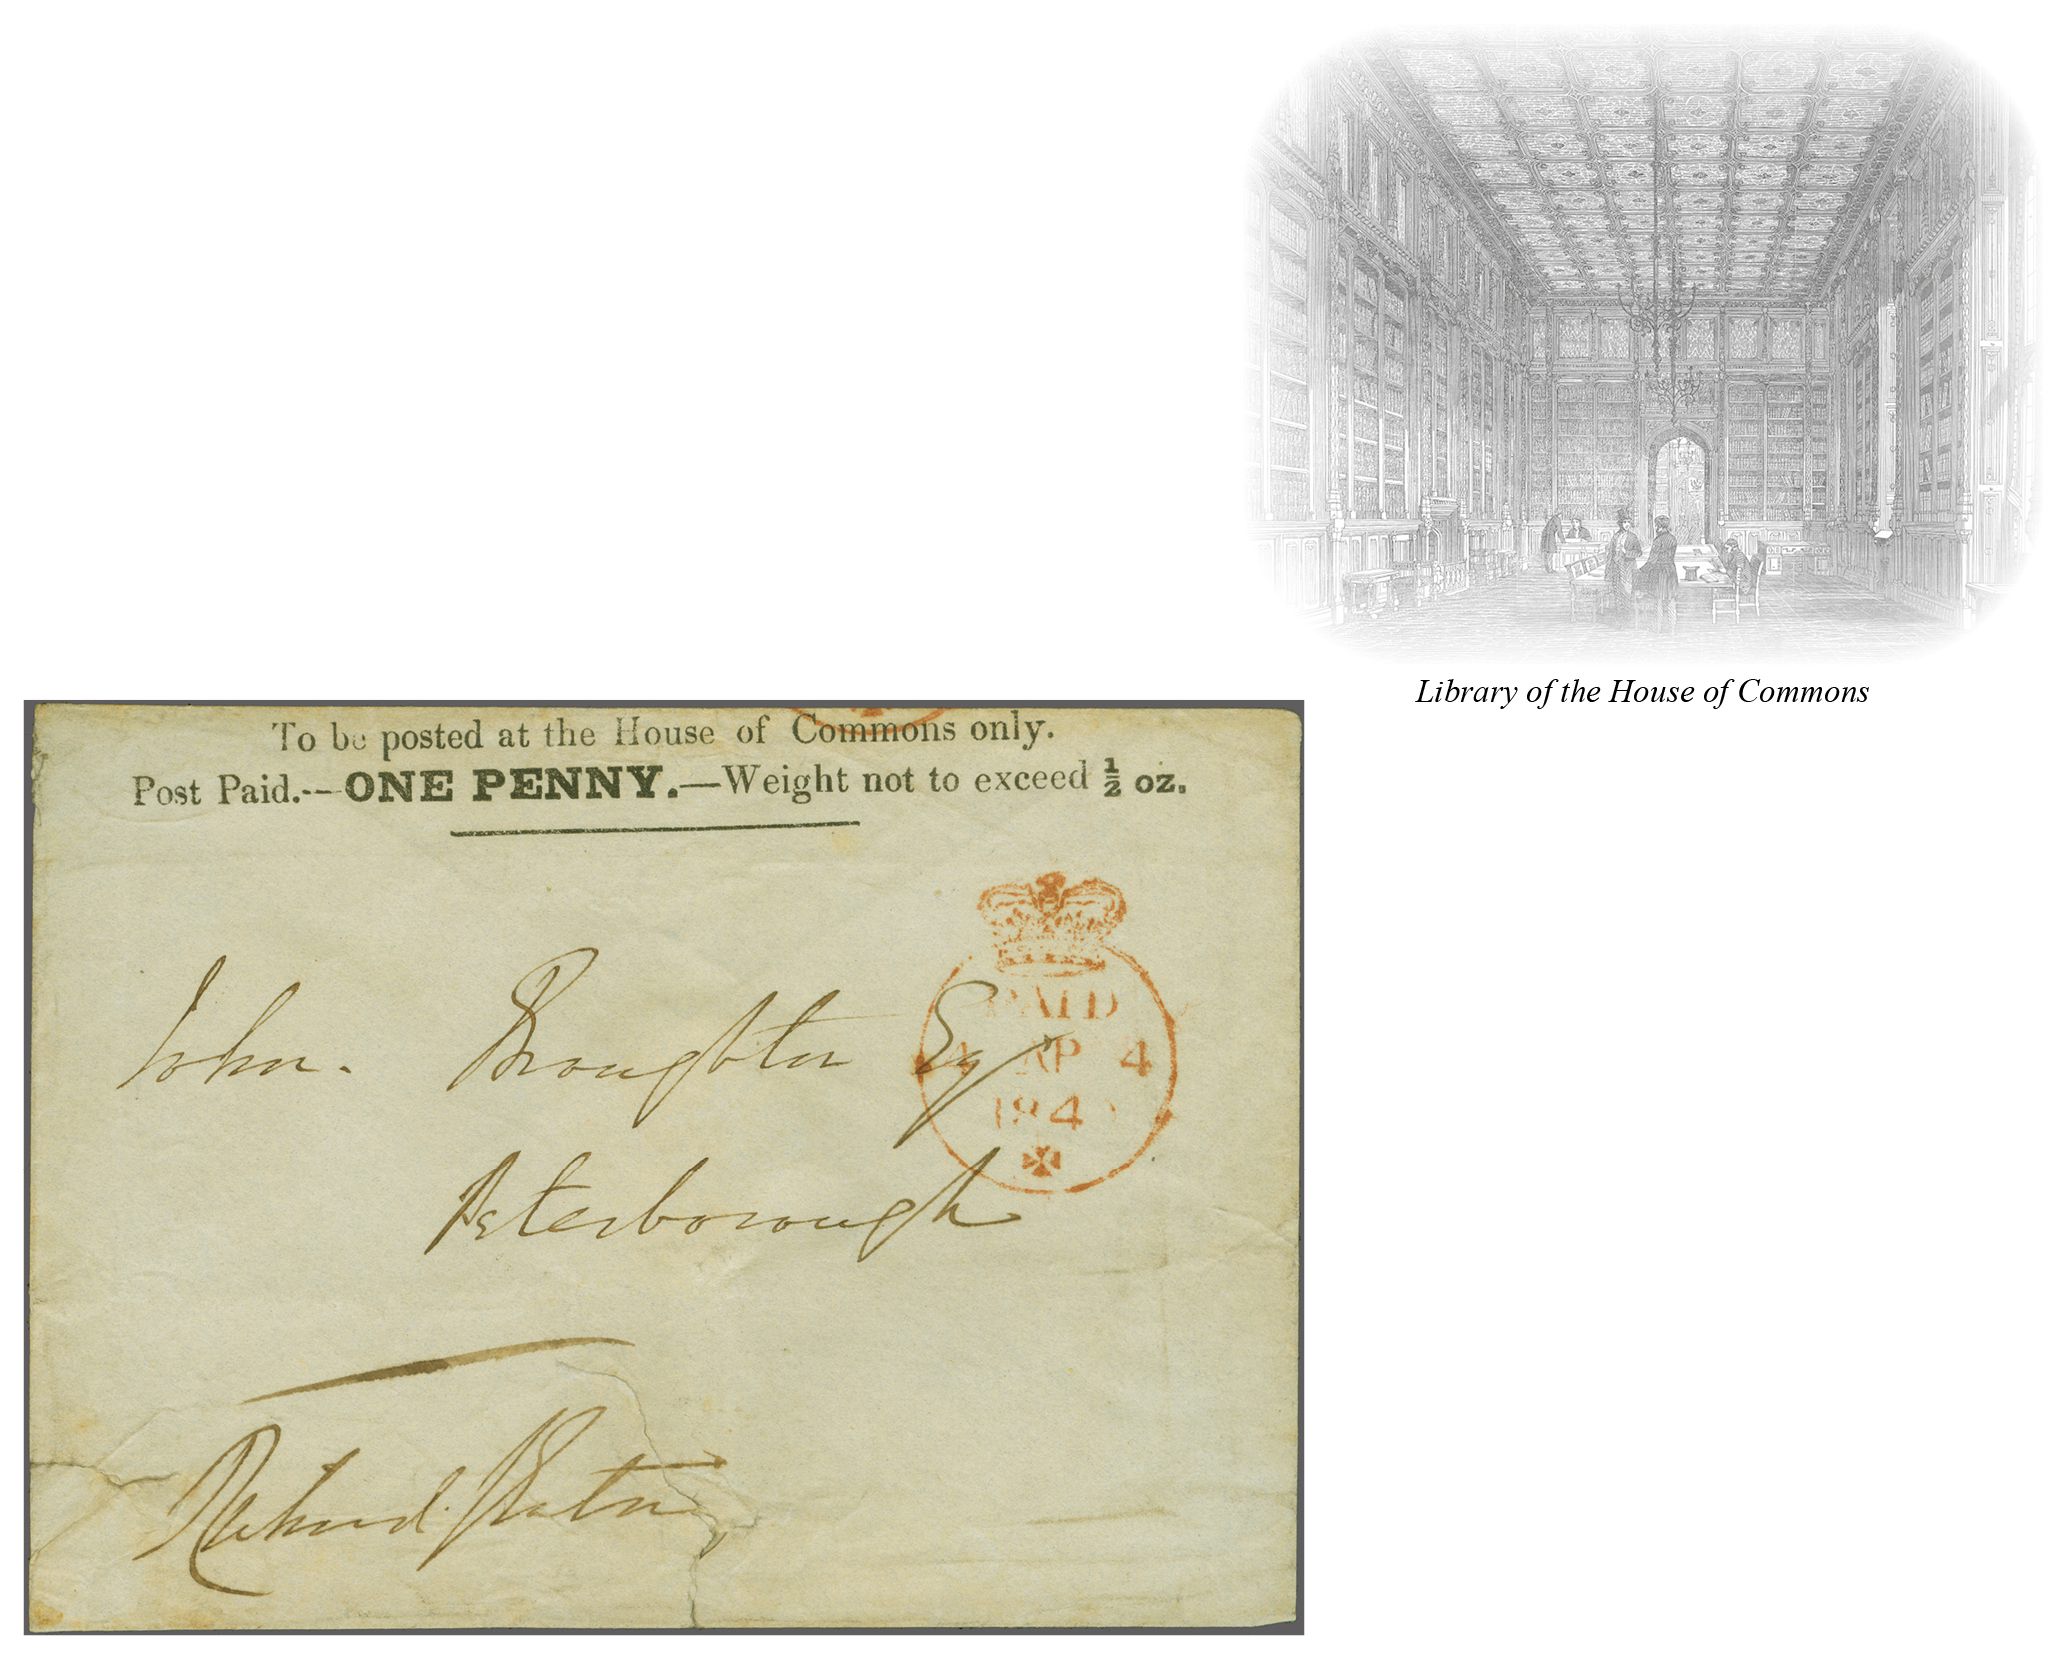 Library of the House of Commons
To be posted at the House of Commons only.
Post Paid.--ONE PENNY.—Weight not to exceed ½ oz.
PAID
4 AP 4
184
John. Broughton Esqr
Peterborough
Richard